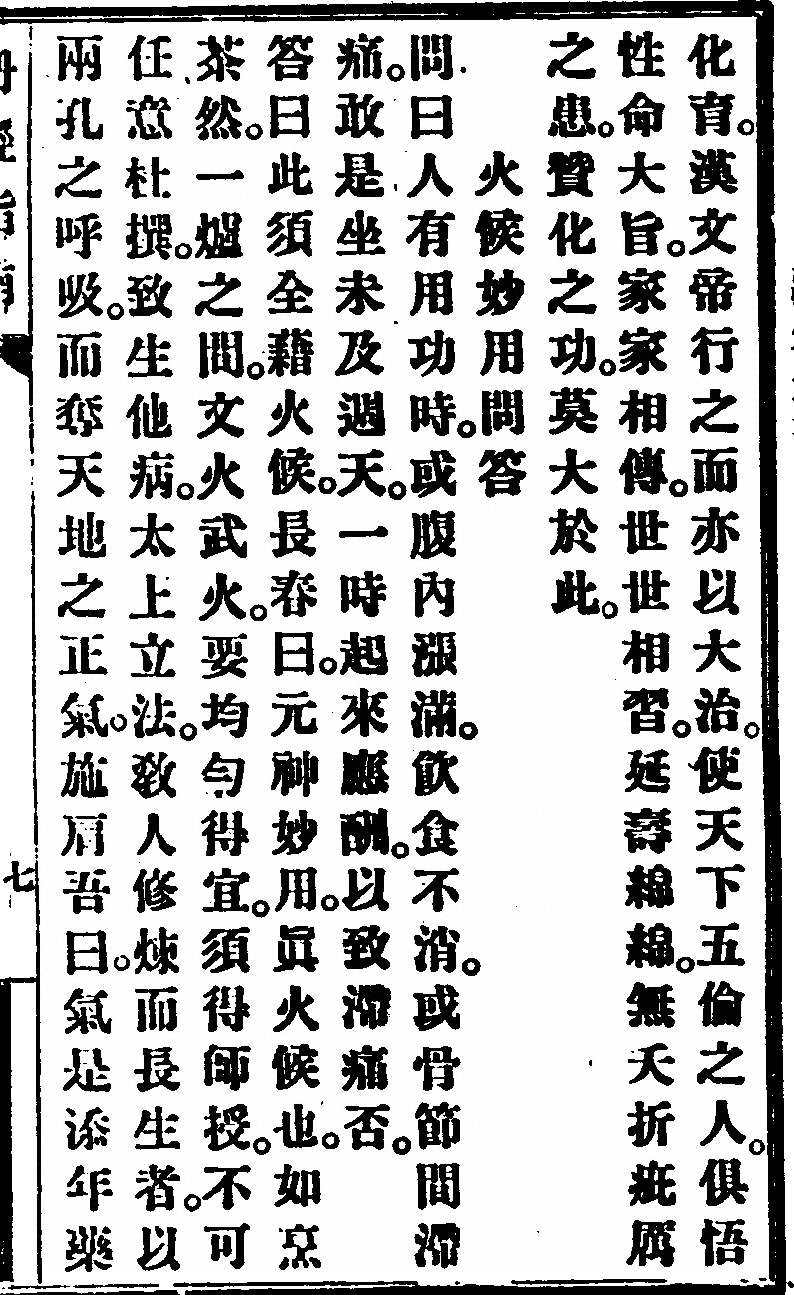 化育。漢文帝行之而亦以大治。使天下五倫之人。俱悟
性命大旨。家家相傳。世世相習。延壽綿綿。無夭折疵厲
之患。贊化之功。莫大於此。
火候妙用問答
問曰人有用功時。或腹內漲滿。飲食不消。或骨節間滯
痛。敢是坐未及過天。一時起來應酬。以致滯痛否。
答曰此須全藉火候。長春曰。元神妙用。眞火候也。如烹
茶然。一爐之間。文火武火。要均勻得宜。須得師授。不可
任意杜撰。致生他病。太上立法。敎人修煉而長生者。以
兩孔之呼吸。而奪天地之正氣。施肩吾曰。氣是添年藥
丹經指南
七